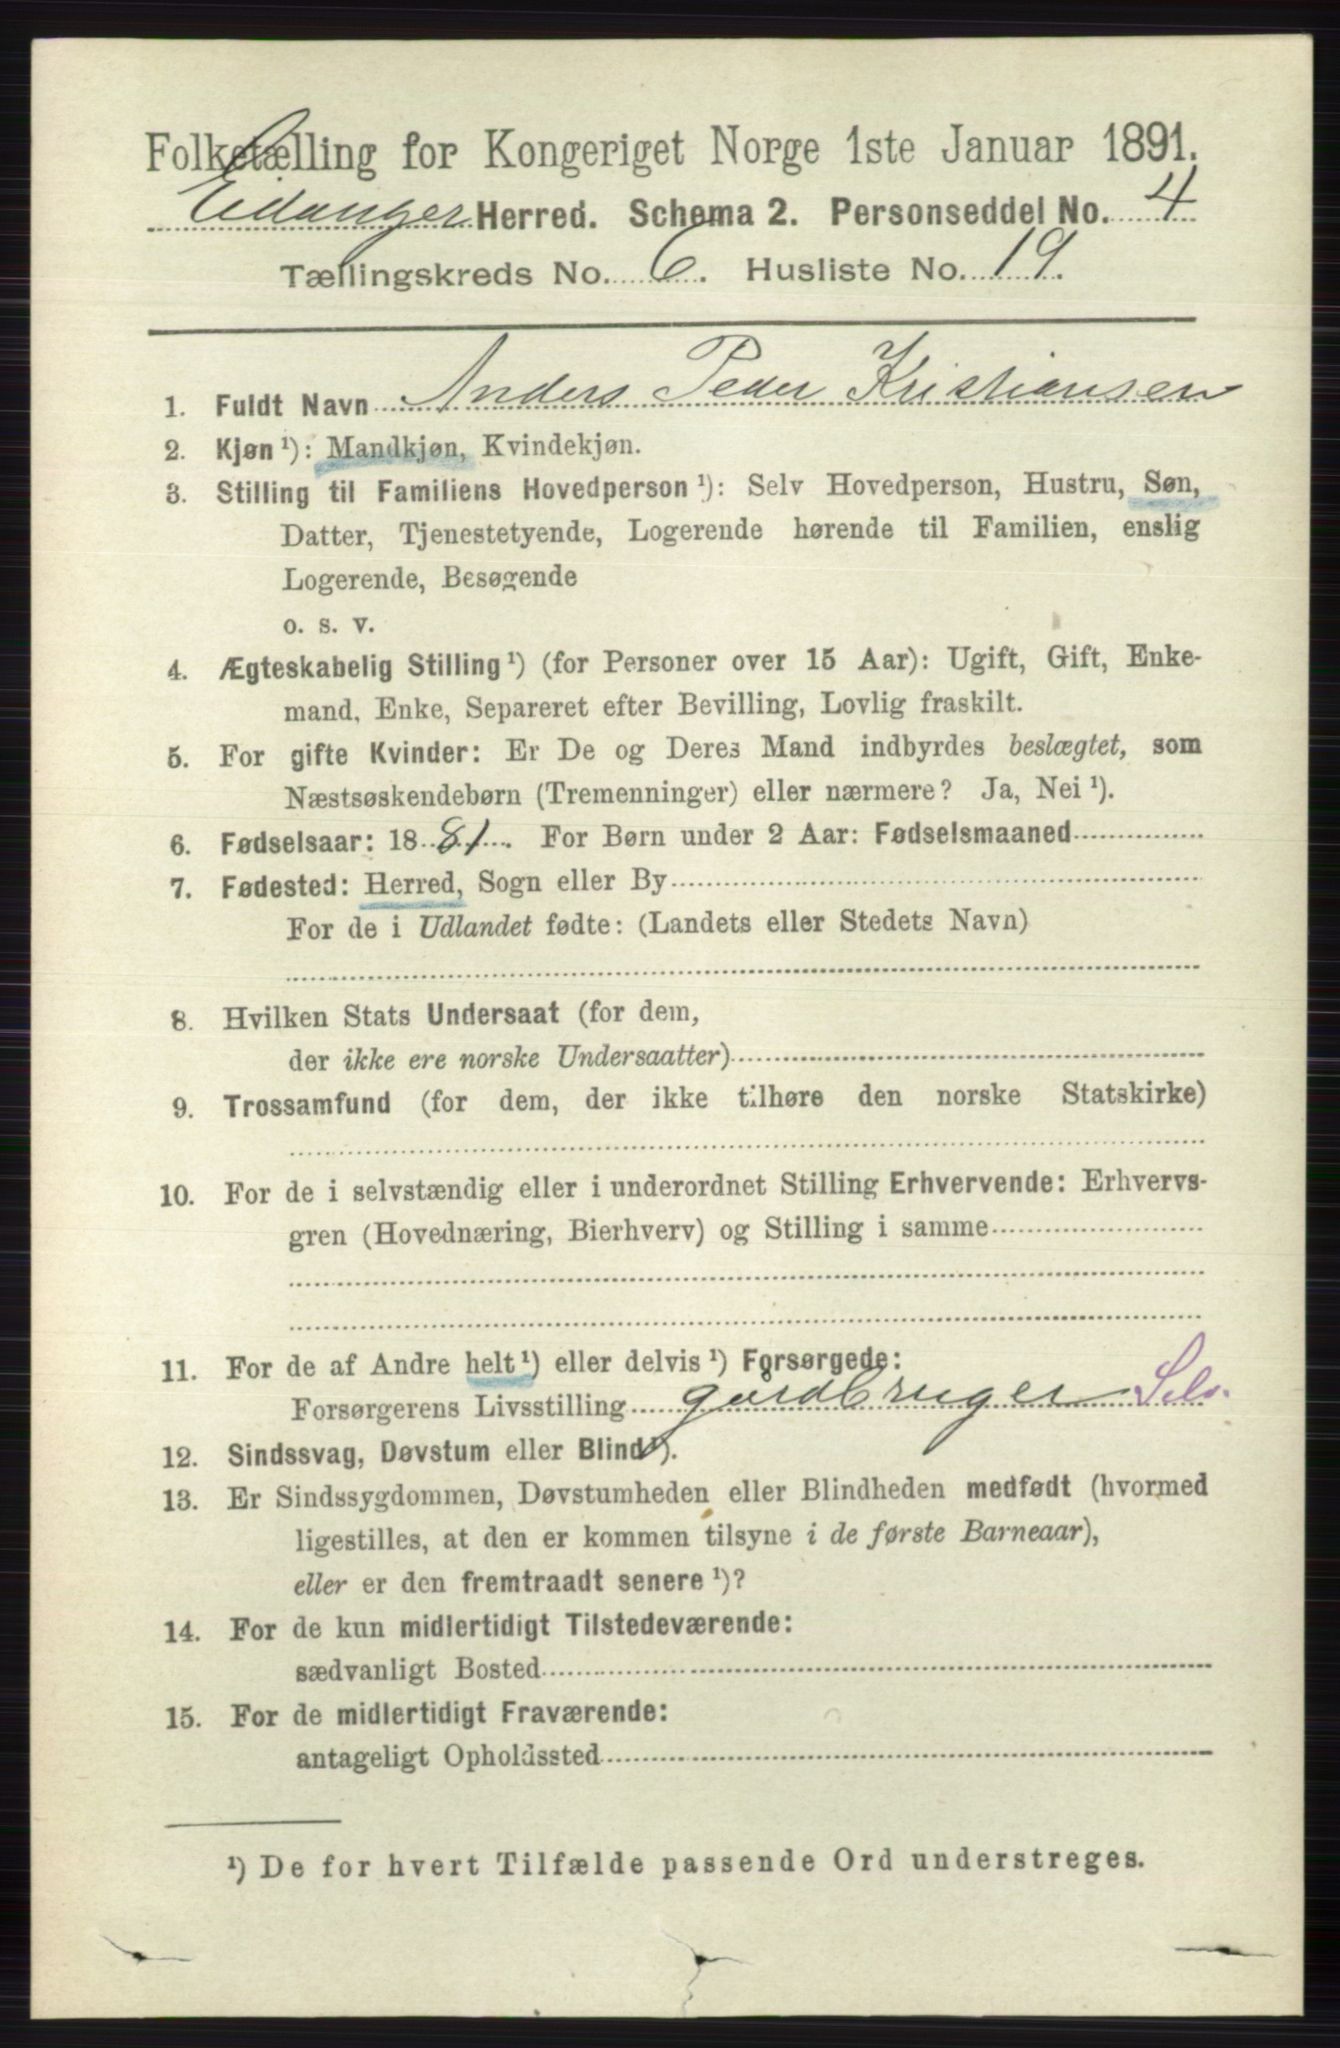 Folketælling for Kongeriget Norge 1ste Januar 1891.
Eidanger Herred. Schema 2. Personseddel No. 4
Tællingskreds No. 6. Husliste No. 19.
1. Fuldt Navn Anders Peder Kristiansen
2. Kjøn ¹): Mandkjøn, Kvindekjøn.
3. Stilling til Familiens Hovedperson ¹): Selv Hovedperson, Hustru, Søn,
Datter, Tjenestetyende, Logerende hørende til Familien, enslig
Logerende, Besøgende
o. s. v.
4. Ægteskabelig Stilling ¹) (for Personer over 15 Aar): Ugift, Gift, Enke-
mand, Enke, Separeret efter Bevilling, Lovlig fraskilt.
5. For gifte Kvinder: Er De og Deres Mand indbyrdes beslægtet, som
Næstsøskendebørn (Tremenninger) eller nærmere? Ja, Nei ¹).
6. Fødselsaar: 1881. For Børn under 2 Aar: Fødselsmaaned
7. Fødested: Herred, Sogn eller By
For de i Udlandet fødte: (Landets eller Stedets Navn)
8. Hvilken Stats Undersaat (for dem,
der ikke ere norske Undersaatter)
9. Trossamfund (for dem, der ikke tilhøre den norske Statskirke)
10. For de i selvstændig eller i underordnet Stilling Erhvervende: Erhvervs-
gren (Hovednæring, Bierhverv) og Stilling i samme
11. For de af Andre helt ¹) eller delvis ¹) Forsørgede:
Forsørgerens Livsstilling gårdbruger Selv.
12. Sindssvag, Døvstum eller Blind ¹).
13. Er Sindssygdommen, Døvstumheden eller Blindheden medfødt (hvormed
ligestilles, at den er kommen tilsyne i de første Barneaar),
eller er den fremtraadt senere ¹)?
14. For de kun midlertidigt Tilstedeværende:
sædvanligt Bosted
15. For de midlertidigt Fraværende:
antageligt Opholdssted
¹) De for hvert Tilfælde passende Ord understreges.